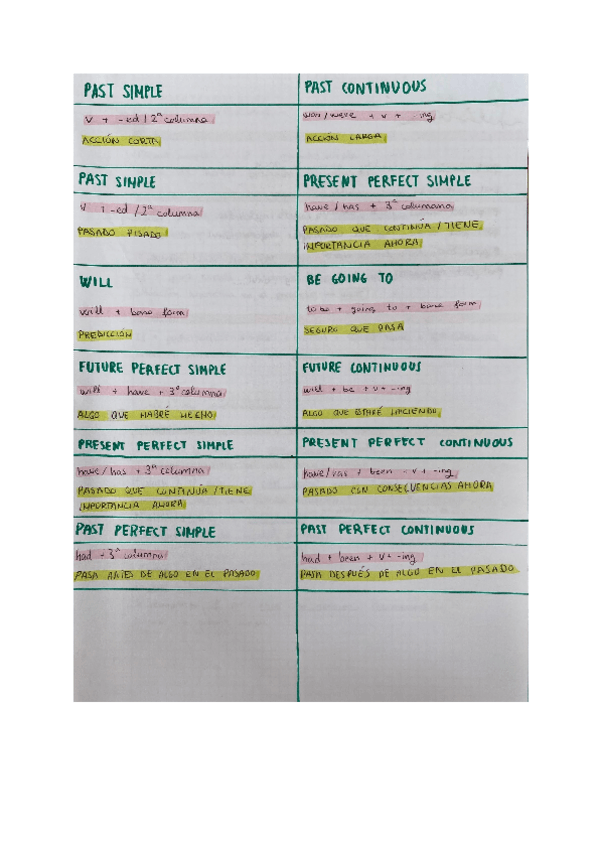 PAST SIMPLE
PAST CONTINUOUS
V + -ed / 2ª columna
was/were + v + -ing
ACCIÓN CORTA
ACCIÓN LARGA
PAST SIMPLE
PRESENT PERFECT SIMPLE
V + -ed / 2ª columna
have / has + 3ª columana
PASADO PISADO
PASADO QUE CONTINÚA / TIENE
IMPORTANCIA AHORA
WILL
BE GOING TO
will + bare form
to be + going to + bare form
PREDICCIÓN
SEGURO QUE PASA
FUTURE PERFECT SIMPLE
FUTURE CONTINUOUS
will + have + 3ª columna
will + be + v + -ing
ALGO QUE HABRÉ HECHO
ALGO QUE ESTARÉ HACIENDO
PRESENT PERFECT SIMPLE
PRESENT PERFECT CONTINUOUS
have / has + 3ª columna
have/has + been + v + -ing
PASADO QUE CONTINÚA / TIENE
IMPORTANCIA AHORA
PASADO CON CONSECUENCIAS AHORA
PAST PERFECT SIMPLE
PAST PERFECT CONTINUOUS
had + 3ª columna
had + been + v + -ing
PASA ANTES DE ALGO EN EL PASADO
PASA DESPUÉS DE ALGO EN EL PASADO